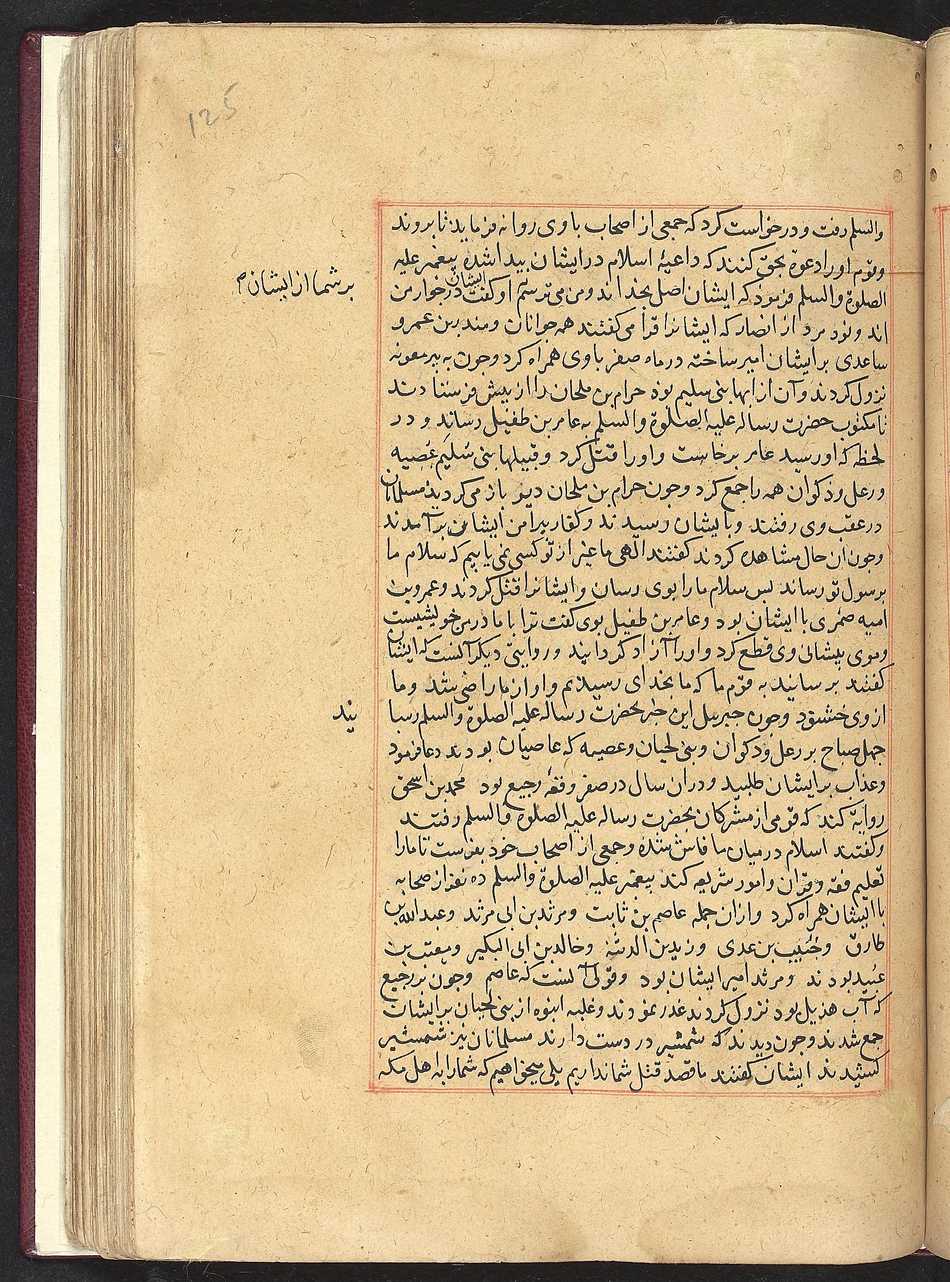 125
والسلم رفت و درخواست کرد که جمعی از اصحاب با وی روانه فرماید تا بروند
وقوم او را دعوة بحق کنند که داعیهٔ اسلام در ایشان پیدا شده پیغمبر علیه
الصلوة والسلم فرمود که ایشان اصل نجد اند ومن می ترسم او کفت ایشان در جوار من
بر شما از ایشان م
اند ونود مرد از انصار که ایشانرا قرا می کفتند همه جوانان ومنذر بن عمرو
ساعدی بر ایشان امیر ساخته در ماه صفر با وی همراه کرد وجون به بیر معونه
نزول کردند وآن از ابهاء بنی سلیم بود حرام بن ملحان را از پیش فرستادند
تا مکتوب حضرت رساله علیه الصلوة والسلم به عامر بن طفیل رساند و در
لحظه که او رسید عامر برخاست واورا قتل کرد وقبیلها بنی سلیم عصیه
ورعل وذکوان همه را جمع کرد وجون حرام بن ملحان دیر باز می کردید مسلمانان
در عقب وی رفتند وبایشان رسیدند وکفار پیرامن ایشان بر آمدند
وجون ان حال مشاهده کردند کفتند الهی ما غیر از تو کسی نمی یابیم که سلام ما
برسول تو رساند بس سلام ما را بوی رسان وایشانرا قتل کردند وعمرو بن
امیه ضمری با ایشان بود وعامر بن طفیل بوی کفت ترا با مادر من خویشیست
وموی پیشانی وی قطع کرد واورا آزاد کردانید وروایتی دیکر آنست که ایشان
کفتند برسانید به قوم ما که ما بخدای رسیدیم واو از ما راضی شد وما
از وی خشنود وجون جبریل این خبر بحضرت رساله علیه الصلوة والسلم رسا
نید
جهل صباح بر رعل وذکوان وبنی لحیان وعصیه که عاصیان بودند دعا فرمود
وعذاب بر ایشان طلبید ودران سال در صفر وقعهٔ رجیع بود محمد بن اسحق
روایة کند که قومی از مشرکان بحضرت رساله علیه الصلوة والسلم رفتند
وکفتند اسلام در میان ما فاش شده وجمعی از اصحاب خود بفرست تا مارا
تعلیم فقه وقرآن وامور شریعه کند پیغمبر علیه الصلوة والسلم ده نفر از صحابه
با ایشان همراه کرد وازان جمله عاصم بن ثابت ومرثد بن ابی مرثد وعبد الله بن
طارق وخبیب بن عدی وزید بن الدثنه وخالد بن ابی البکیر ومعتب بن
عبید بودند ومرثد امیر ایشان بود وقولی آنست که عاصم وجون بر رجیع
که آب هذیل بود نزول کردند غدر نمودند وغلبه انبوه از بنی لحیان بر ایشان
جمع شدند وجون دیدند که شمشیر در دست دارند مسلمانان نیز شمشیر
کشیدند ایشان کفتند ما قصد قتل شما نداریم بلی میخواهیم که شما را به اهل مکه